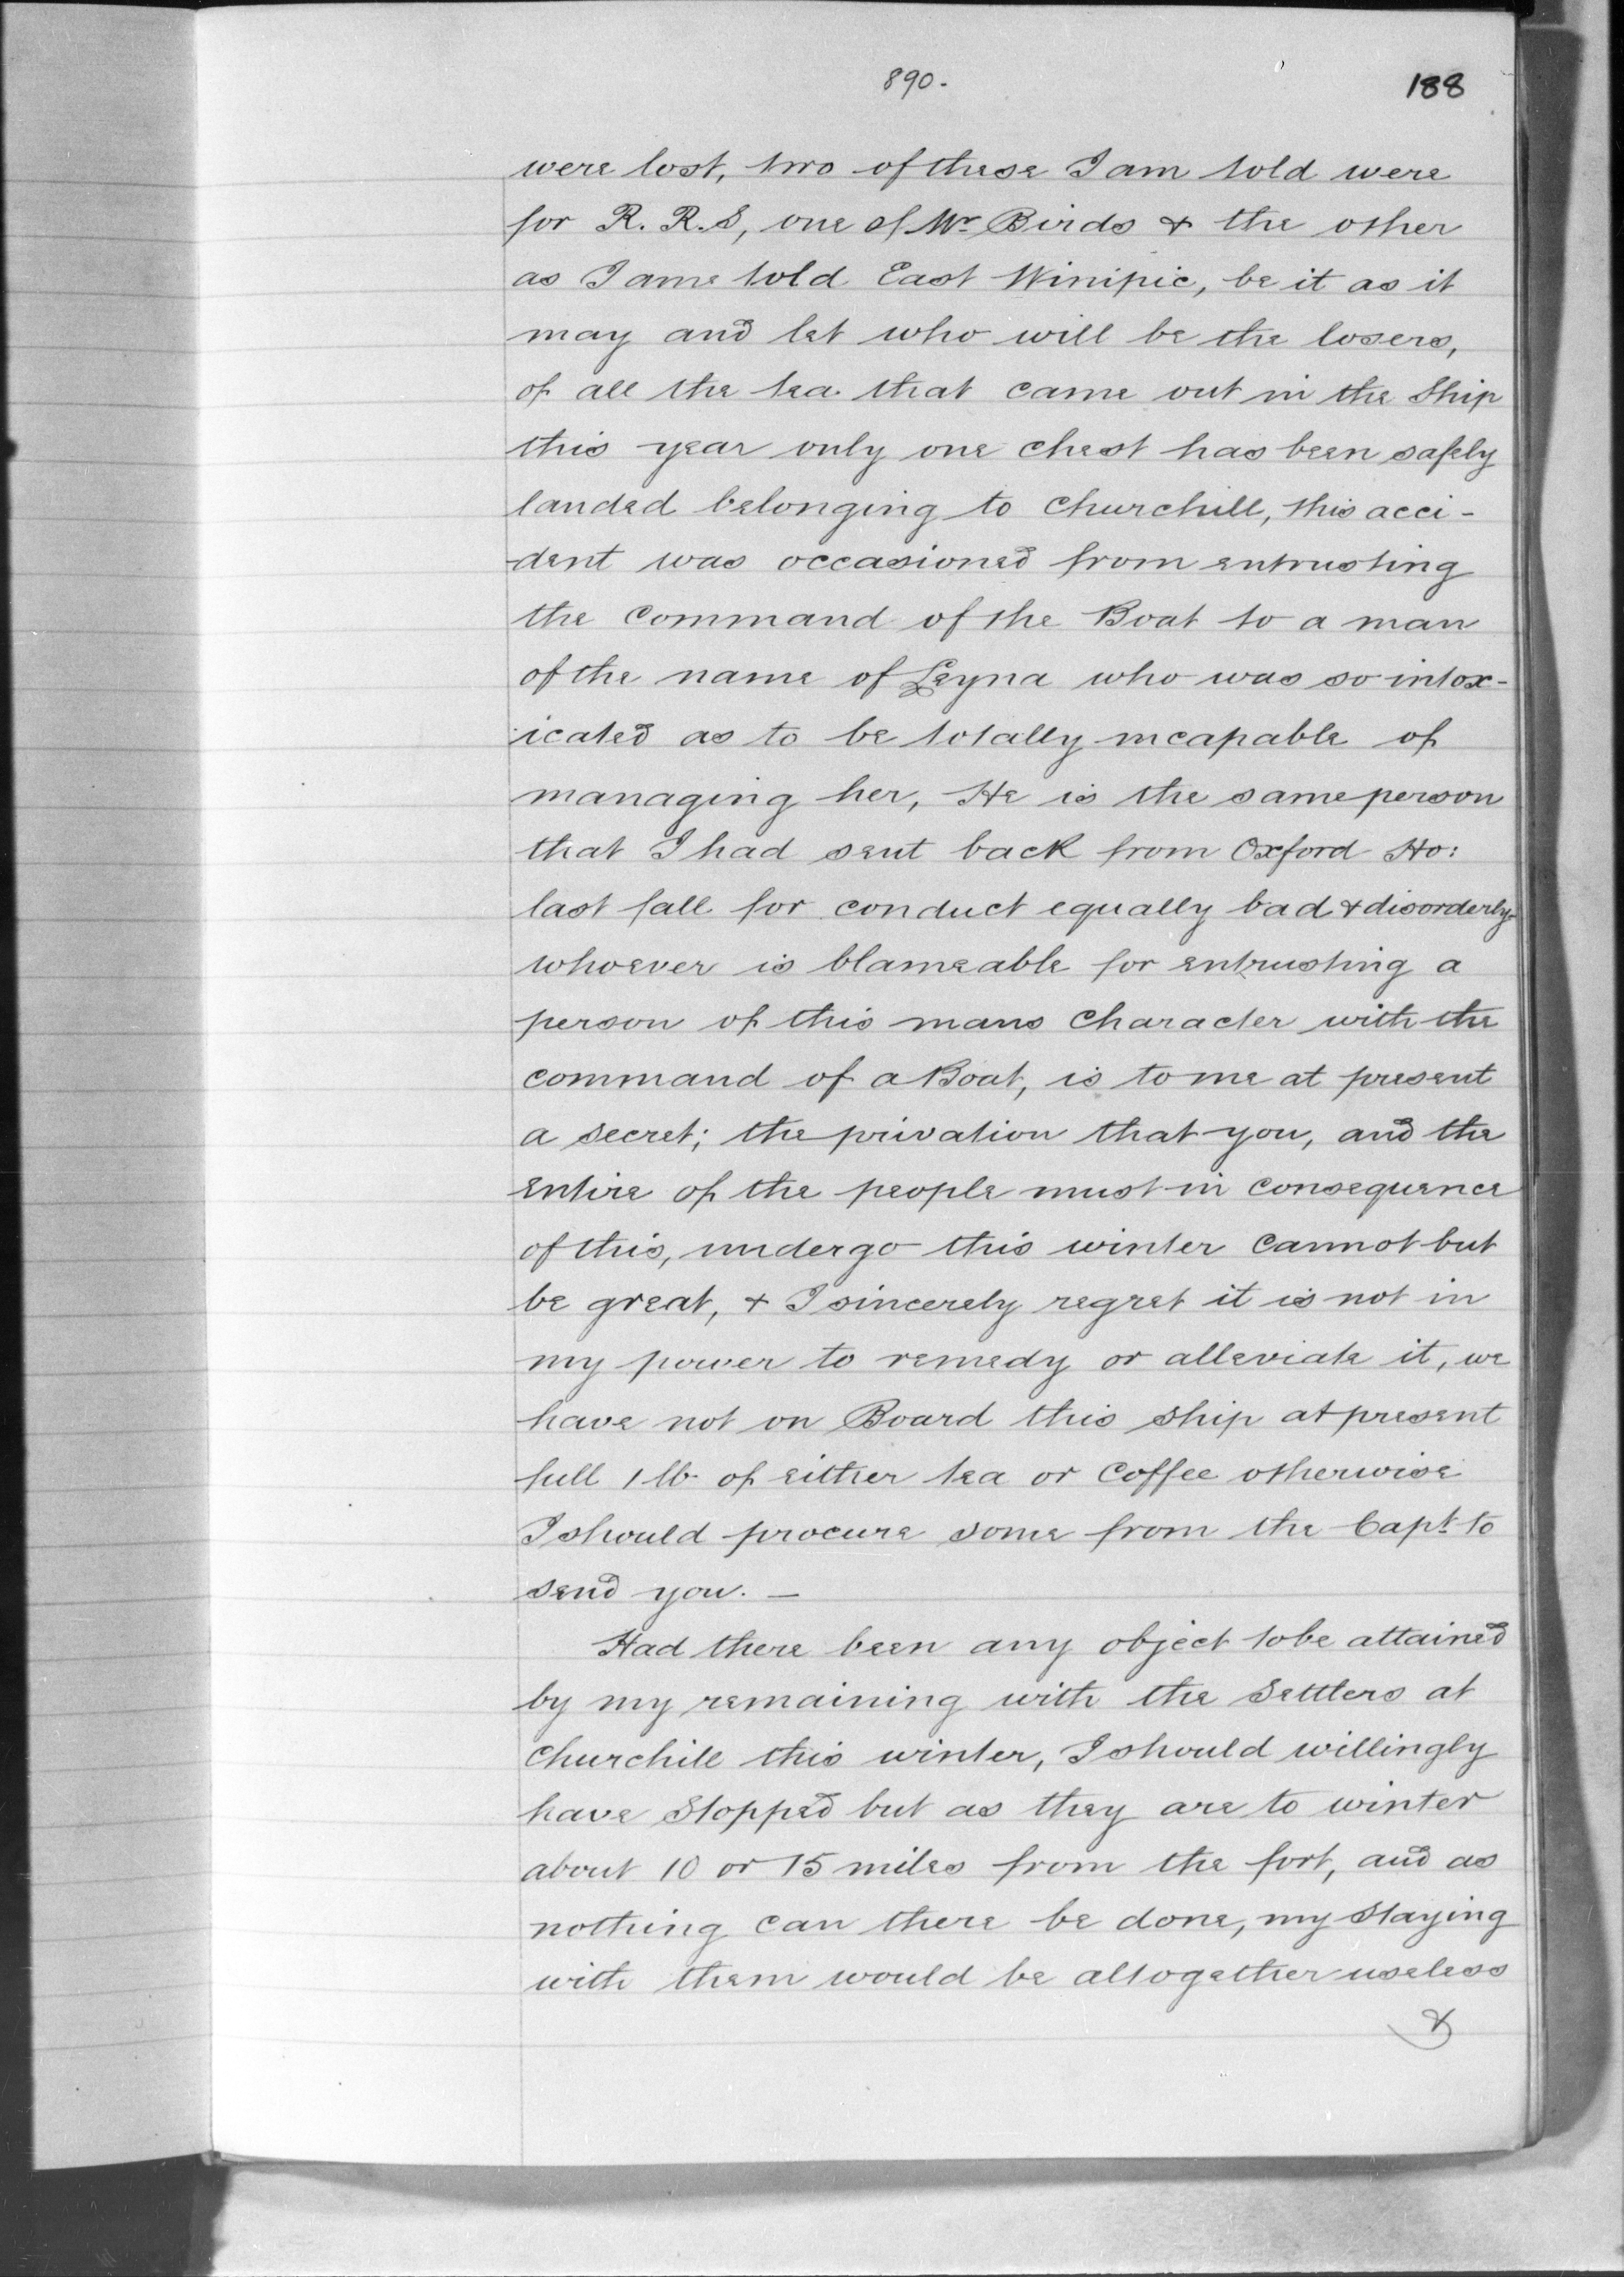 890.
188
were lost, two of these I am told were
for R. R. S, one of Mr Birds & the other
as I ame told East Winipic, be it as it
may and let who will be the losers,
of all the tea that came out in the Ship
this year only one chest has been safely
landed belonging to Churchill, this acci-
dent was occasioned from entrusting
the Command of the Boat to a man
of the name of Leyna who was so intox-
icated as to be totally incapable of
managing her, He is the same person
that I had sent back from Oxford Ho:
last fall for conduct equally bad & disorderly
whoever is blameable for entrusting a
person of this mans Character with the
command of a Boat, is to me at present
a secret; the privation that you, and the
Entire of the people must in consequence
of this, undergo this winter cannot but
be great, & I sincerely regret it is not in
my power to remedy or alleviate it, we
have not on Board this ship at present
full 1 lb of either tea or Coffee otherwise
I should procure some from the Capt to
send you. —
Had there been any object to be attained
by my remaining with the Settlers at
Churchill this winter, I should willingly
have Stopped but as they are to winter
about 10 or 15 miles from the fort, and as
nothing can there be done, my staying
with them would be altogether useless
&